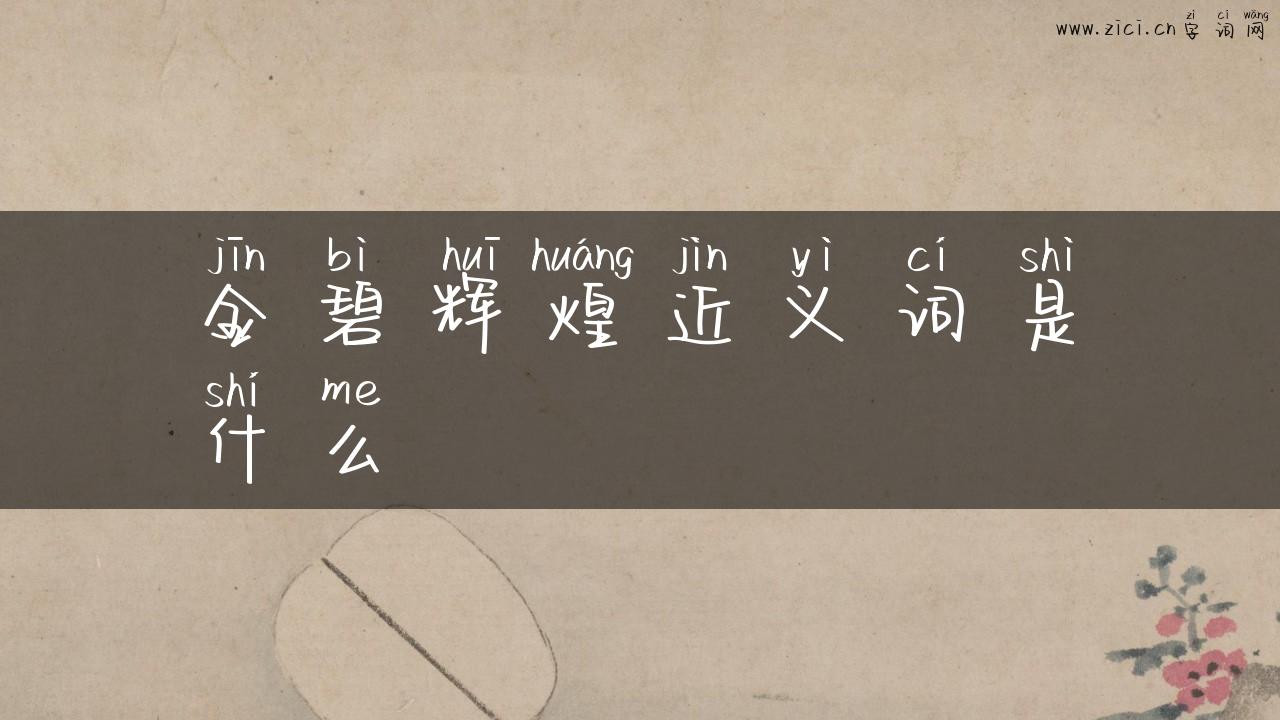 zì cí wǎng
www.zici.cn 字词网
jīn bì huī huáng jìn yì cí shì
金碧辉煌近义词是
shí me
什么